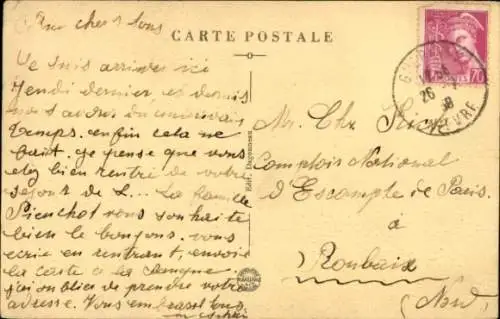 Aux chers tous
CARTE POSTALE
Je suis arrivée ici
Jendi dernier, et depuis
nous avons du mauvais
Temps. enfin cela ne
fait. je pense que vous
etes bien rentré de votre
sejour de L... La famille
Pienchot vous souhaite
bien le bonjour. vous
ecrie en rentrant, envoie
la carte a la
j'ai oublier de prendre votre
adresse. Vous embrasse tous
Mr. Chr.
Comptoir National
d'Escompte de Paris.
à
Roubaix
(Nord)
70
26